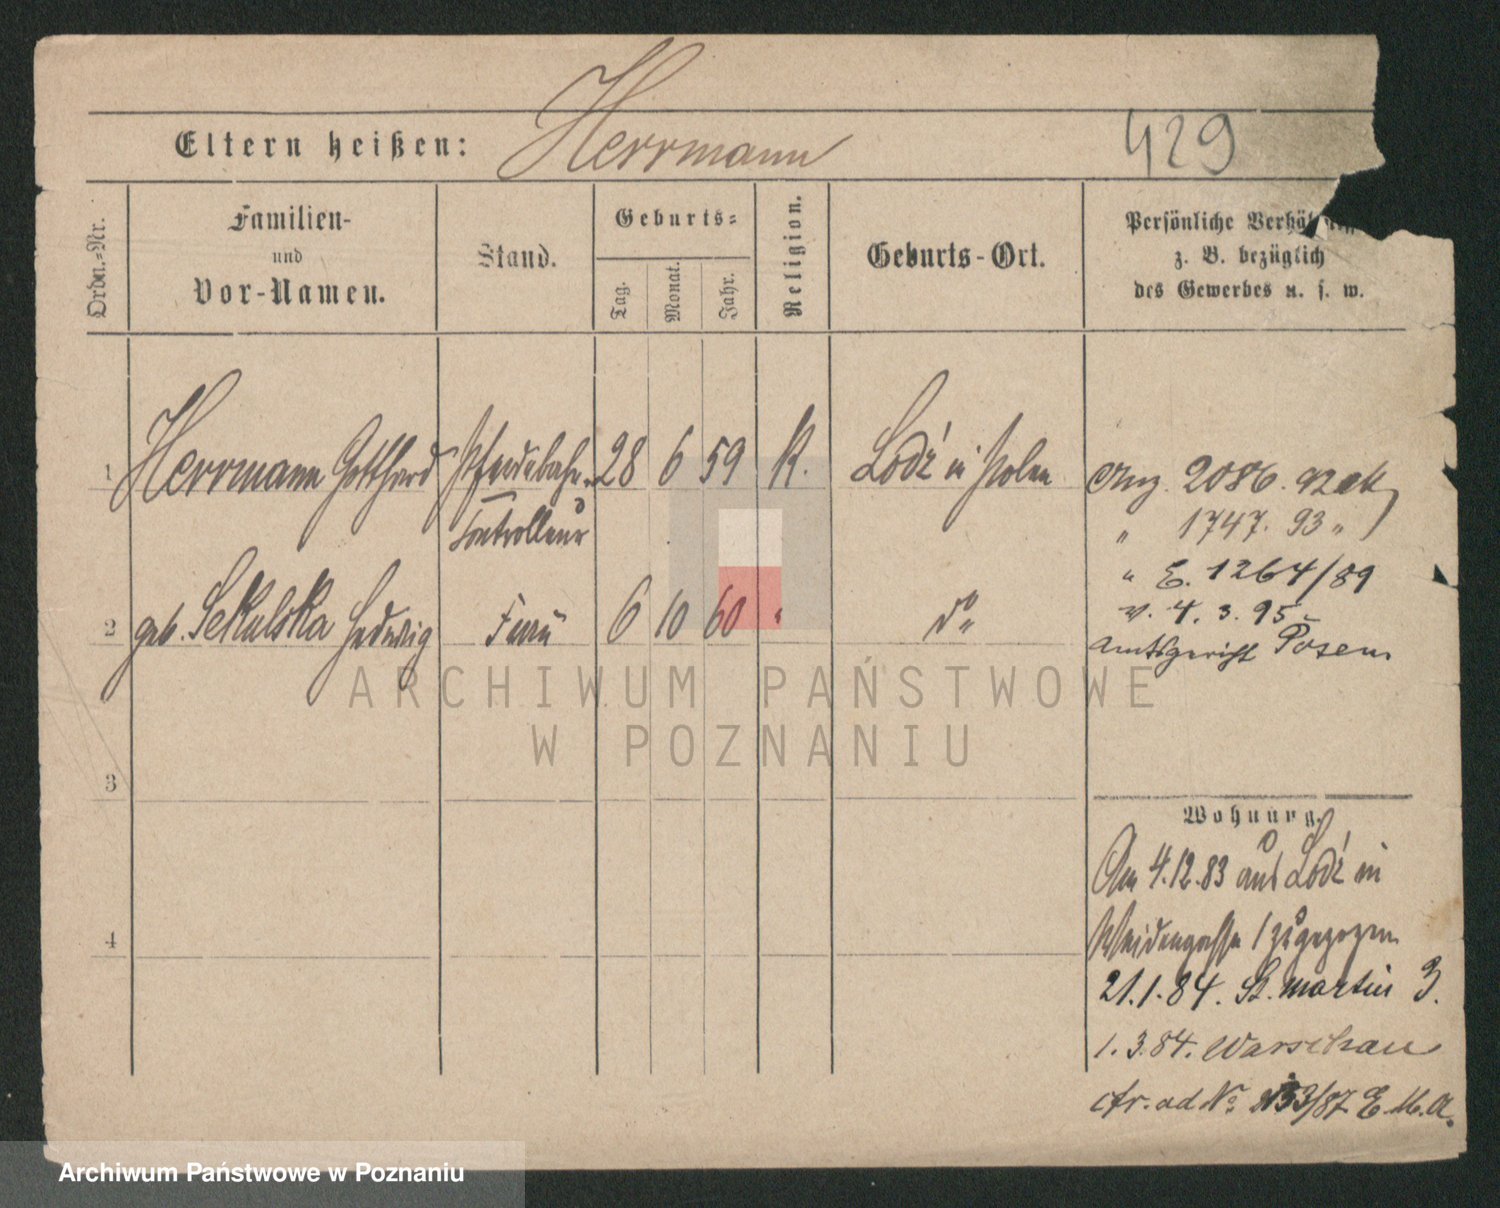 Eltern heißen: Herrmann 429
Ordn.-Nr.
Familien-
und
Vor-Namen.
Stand.
Geburts-
Tag.
Monat.
Jahr.
Religion.
Geburts-Ort.
Persönliche
z. B. bezüglich
des Gewerbes u. s. w.
1 Herrmann Gotthard Pferdebahn- 28 6 59 K. Lodź in Polen
Controlleur
2 geb. Sekulska Hedwig Frau 6 10 60 " do
3
4
2086. 92
" 1747. 93 "
" E. 1264/89
v. 4. 3. 95
Amtsgericht Posen
Wohnung.
Am 4.12.83 aus Lodź in
Weidengasse 1 zugezogen
21.1.84. St. Martin 3.
1.3.84. Warschau
cfr. ad No /87 E. M. A.
ARCHIWUM PAŃSTWOWE
W POZNANIU
Archiwum Państwowe w Poznaniu